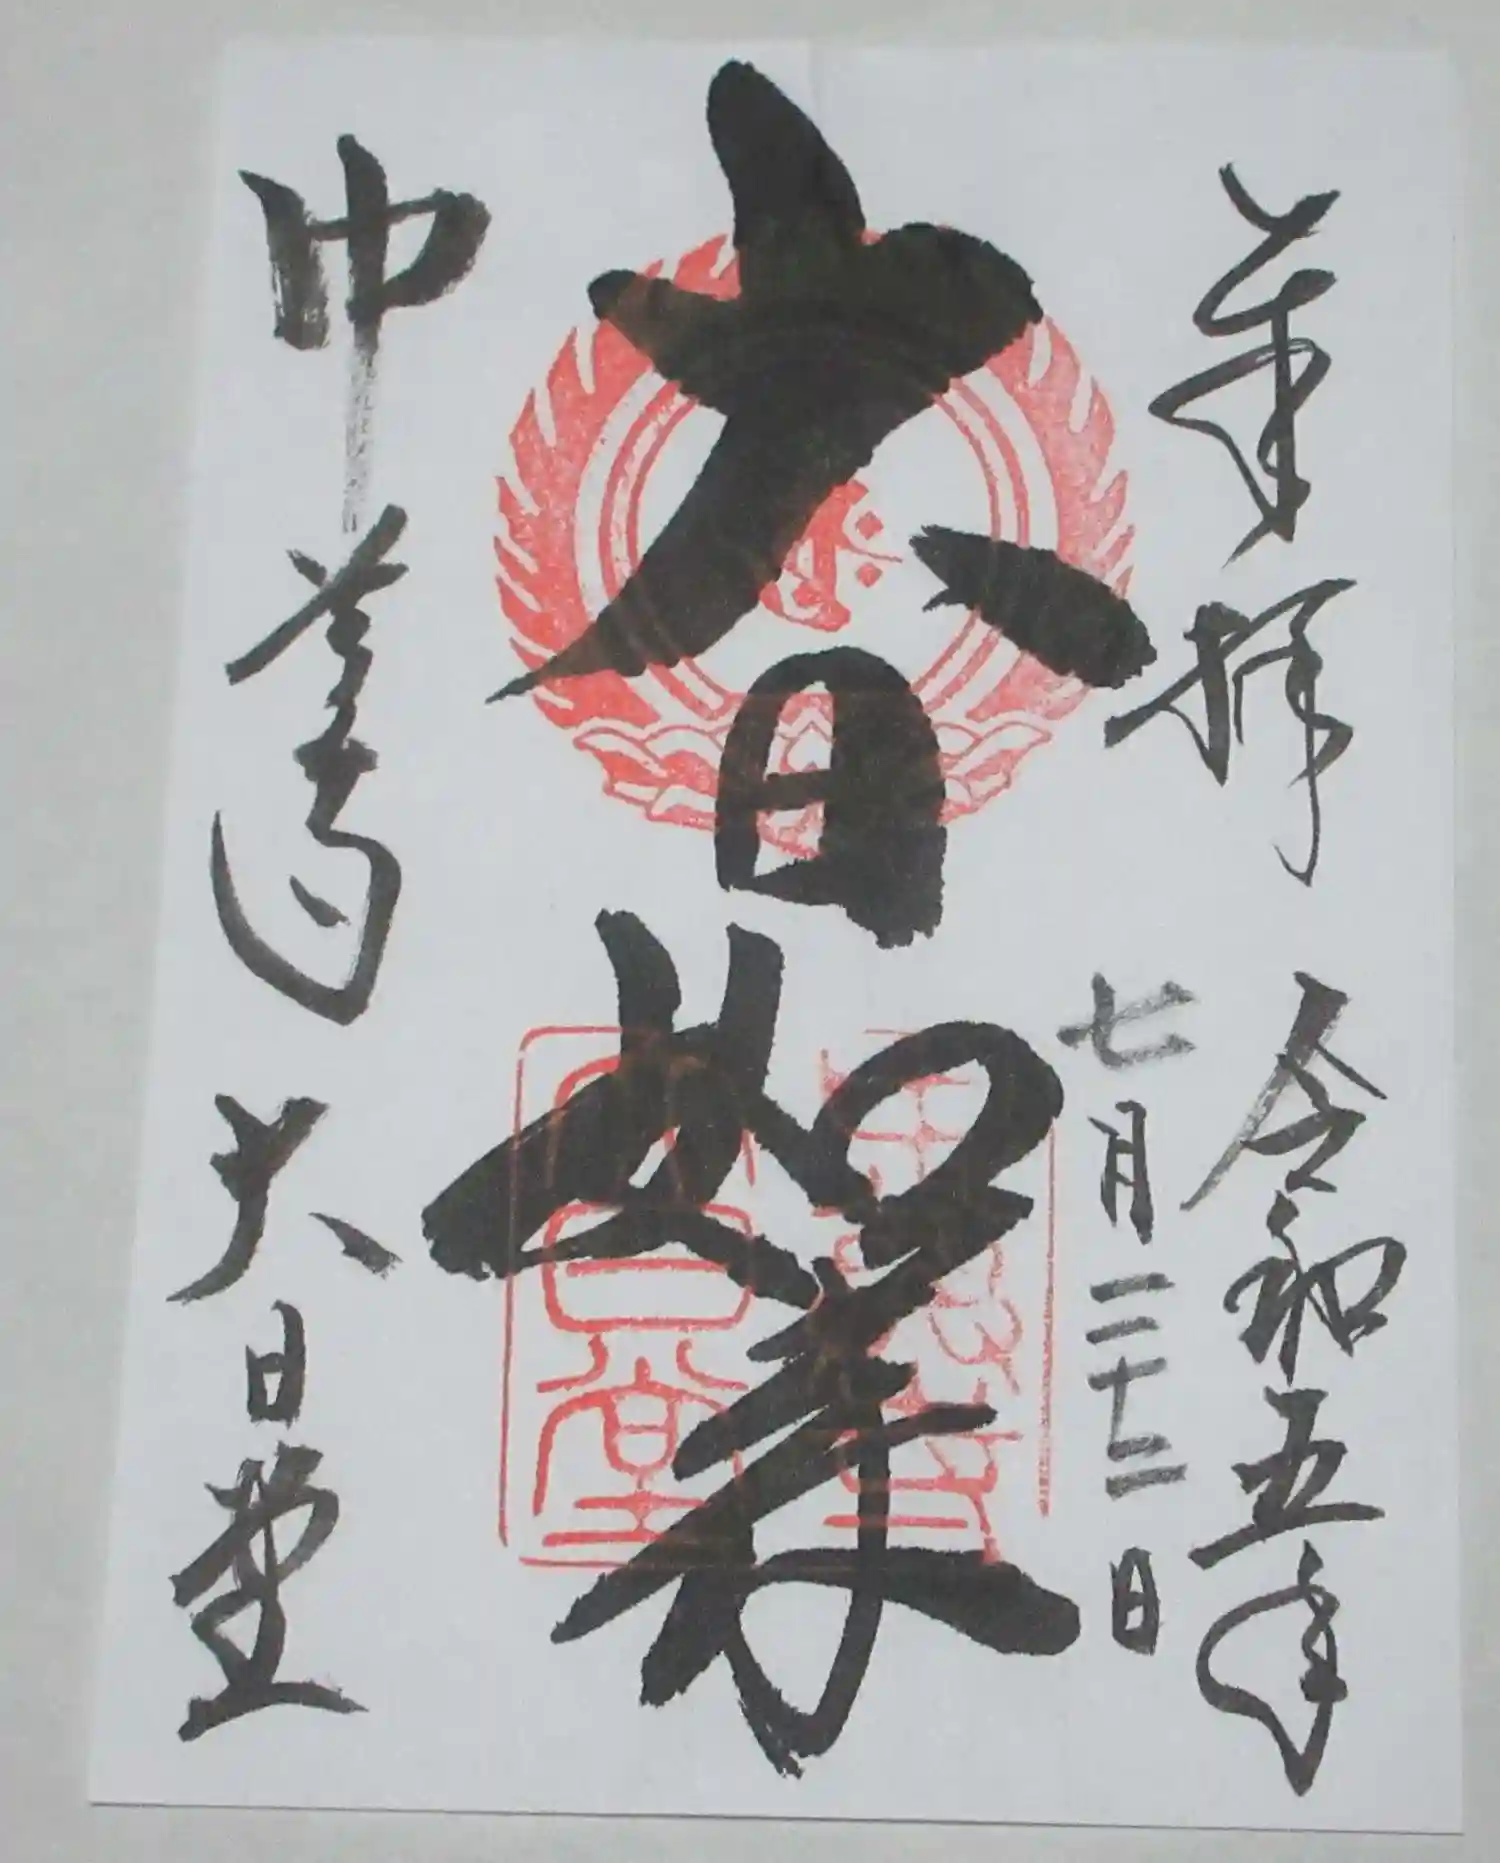 奉拝 令和五年
七月二十二日
大日如来
中尊寺 大日堂
大日堂